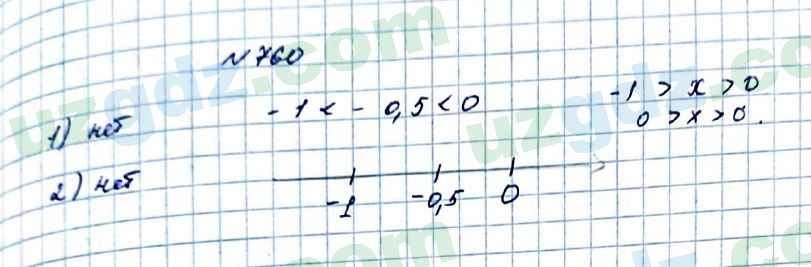 №760
1) нет -1 < - 0,5 < 0 -1 > x > 0
0 > x > 0.
2) нет
-1 -0,5 0
uzgdz.com
uzgdz.com